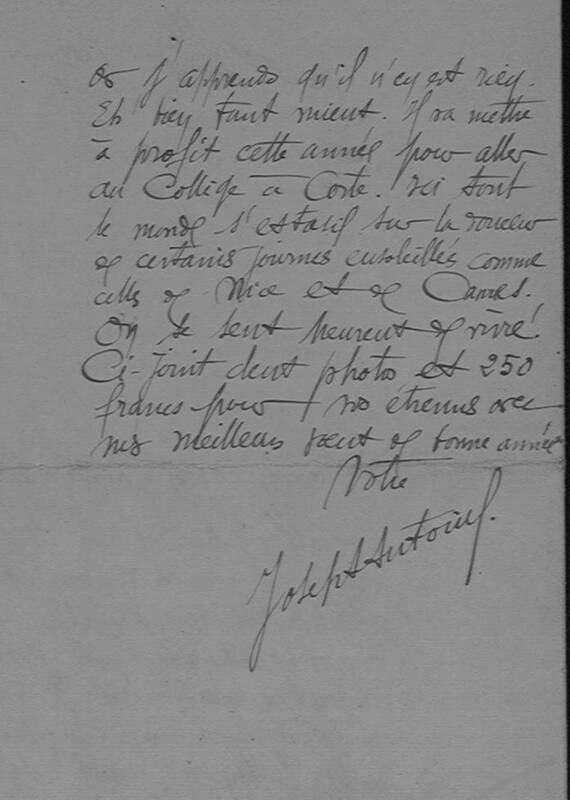 or j'apprends qu'il n'en est rien.
Eh bien tant mieux. Il va mettre
à profit cette année pour aller
au Collège à Corte. Ici tout
le monde s'extasie sur la douceur
de certains journées ensoleillés comme
celles de Nice et de Cannes.
On se sent heureux de vivre!
Ci-joint deux photos et 250
francs pour vos étrennes avec
mes meilleurs vœux de bonne année
Votre
Joseph Antoine.